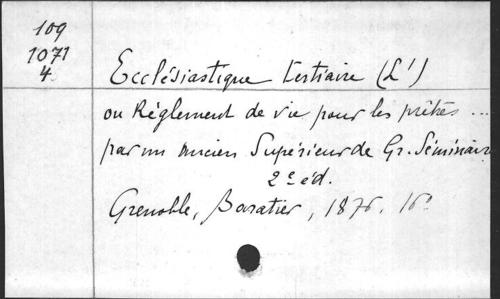 109
1071
4
Ecclésiastique tertiaire (L')
ou Règlement de vie pour les prêtres ...
par un ancien Supérieur de Gr. Séminaire
2e éd.
Grenoble, Baratier, 1876. 16°